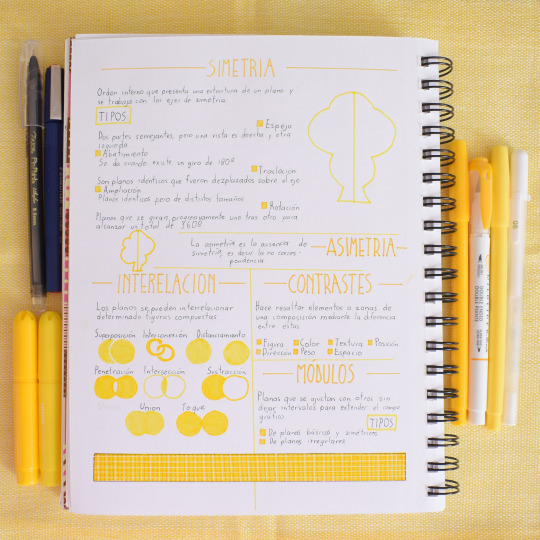 SIMETRIA
Orden interno que presenta una estructura de un plano y
se trabaja con los ejes de simetria
TIPOS
Espejo
Dos partes semejantes, pero una vista es derecha y otra
izquierda
Abatimiento
Se da cuando existe un giro de 180º
Traclación
Son planos idénticos que fueron desplazados sobre el eje
Ampliación
Planos idénticos pero de distintos tamaños
Rotación
Planos que se giran progresivamente uno tras otro para
alcanzar un total de 360º
La asimetria es la ausencia de
simetria, es decir la no corres-
pondencia
ASIMETRIA
INTERELACIÓN
Los planos se pueden interrelacionar
formando figuras compuestas
Superposición Interconexión Distanciamiento
Penetración Intersección Sustracción
Union Toque
CONTRASTES
Hace resaltar elementos o zonas de
una composición mediante la diferencia
entre estas
Figura Color Textura Posición
Dirección Peso Espacio
MÓDULOS
Planos que se ajustan con otros sin
dejar intervalos para extender el campo
gráfico
TIPOS
De planos básicos y simétricos
De planos irregulares